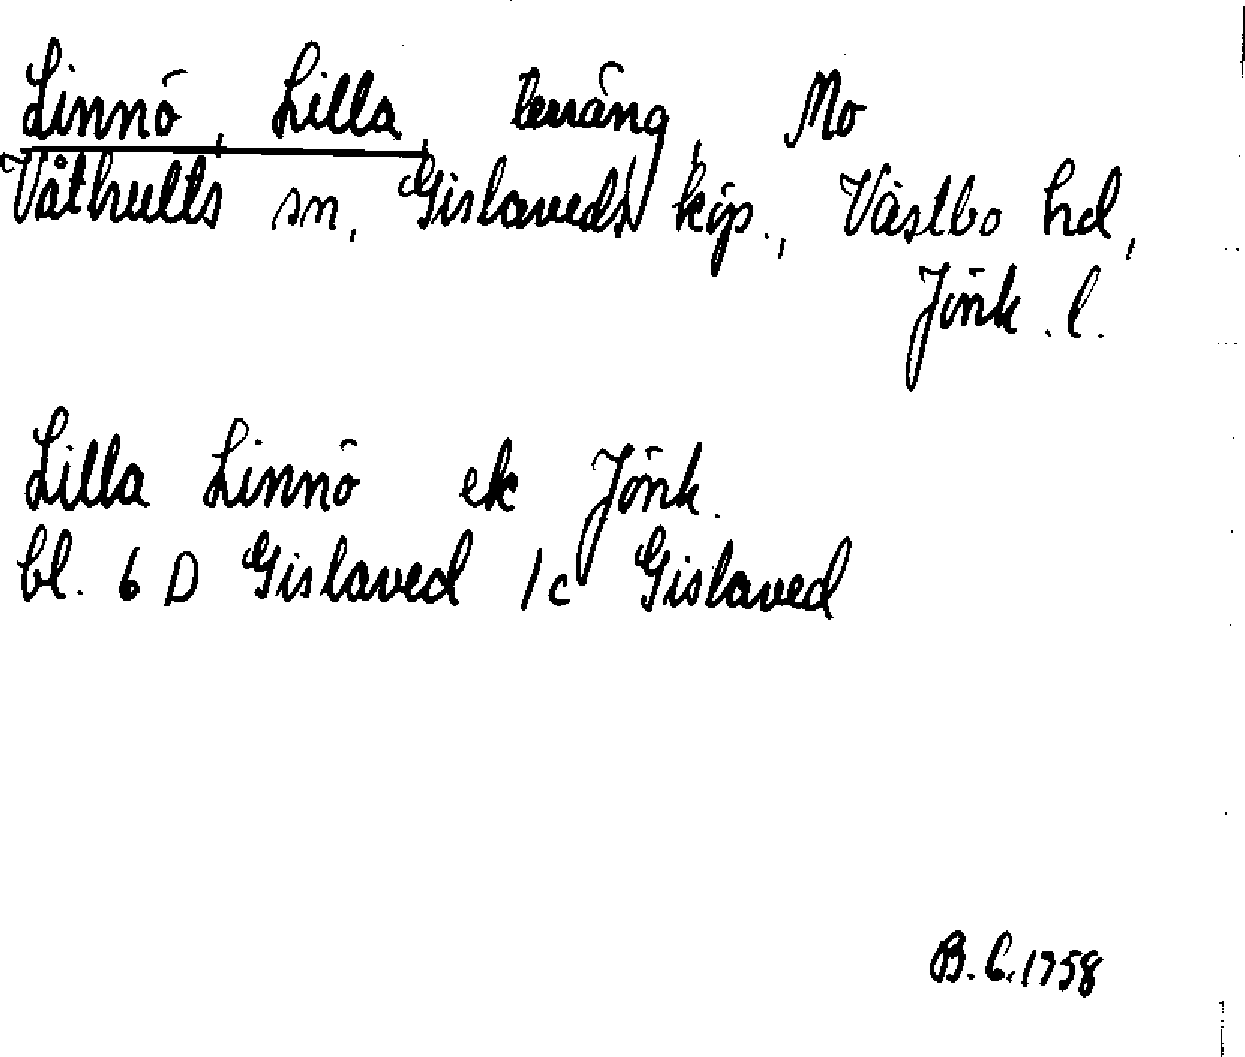 Linnö, Lilla, terräng, Mo
Våthults sn, Gislaveds köp., Västbo hd,
Jönk. l.
Lilla Linnö ek Jönk.
bl. 6 D Gislaved 1c Gislaved
B. 6. 1758